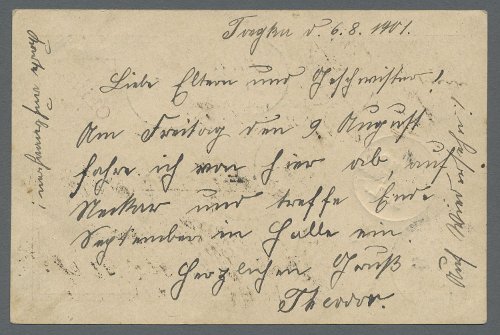 Tongku d. 6.8.1901.
Liebe Eltern und Geschwister!
Am Freitag den 9. August
fahre ich von hier ab, auf
Neckar und treffe Ende
September in Halle ein
Herzlichen Gruß
Theodor.
Auf Wiedersehen!
Karte aufbewahren!